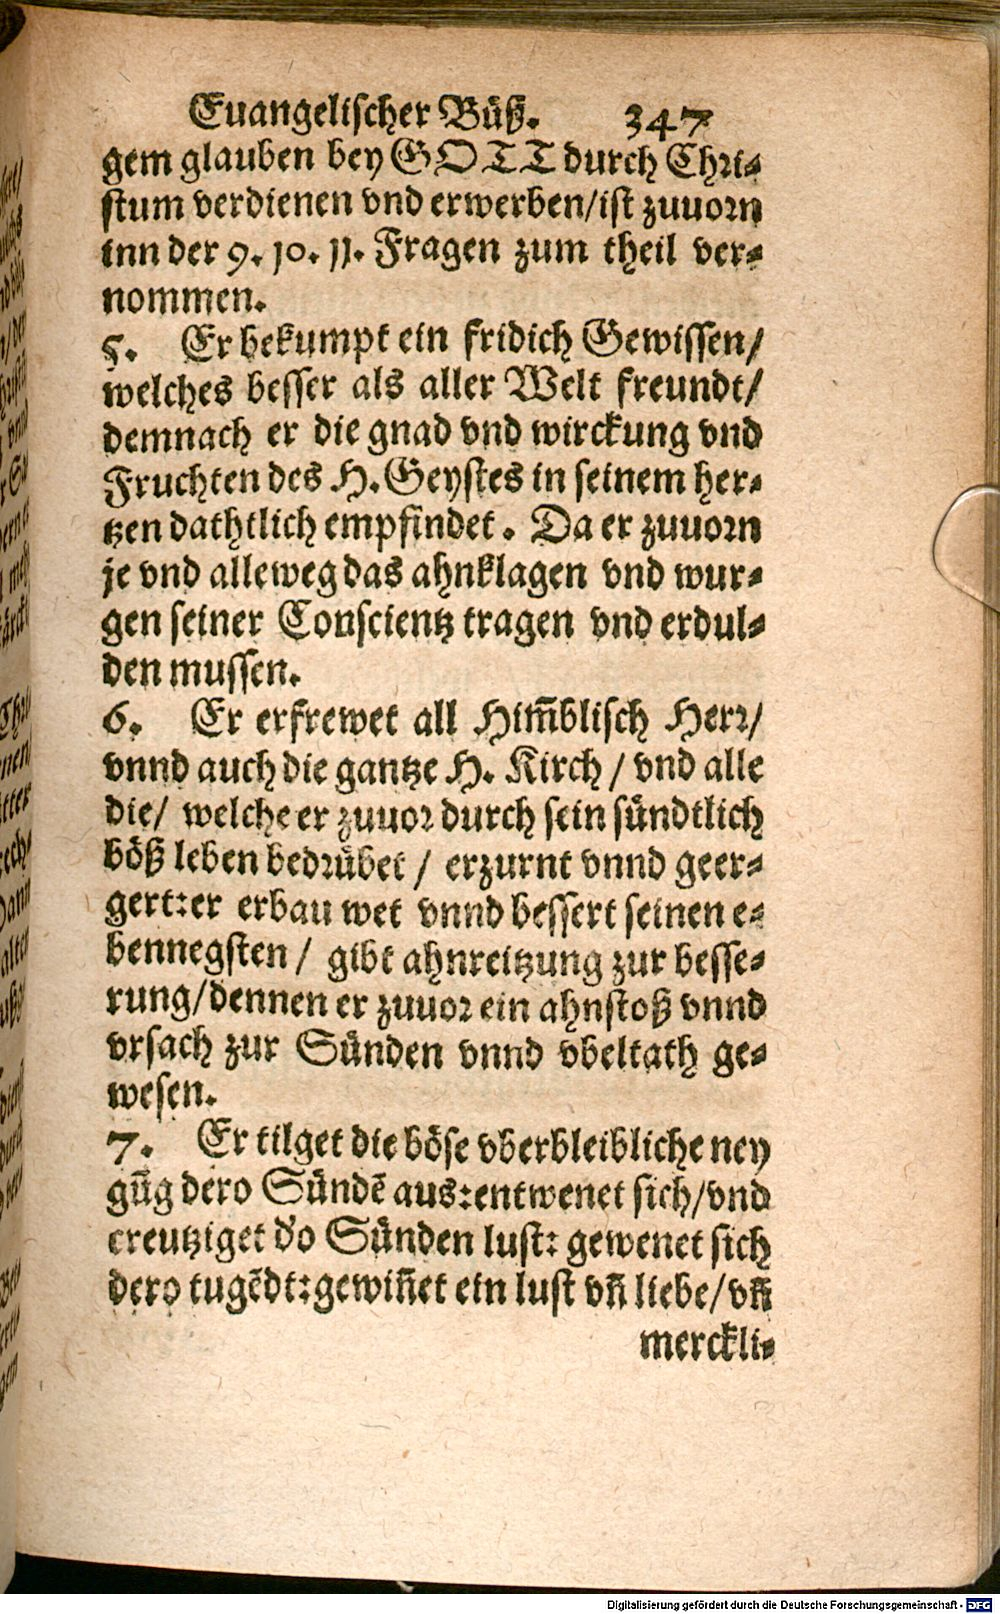 Euangelischer Büß. 347
gem glauben bey GOTT durch Chri-
stum verdienen vnd erwerben/ist zuuorn
inn der 9. 10. 11. Fragen zum theil ver-
nommen.
5. Er bekumpt ein fridich Gewissen/
welches besser als aller Welt freundt/
demnach er die gnad vnd wirckung vnd
Fruchten des H. Geystes in seinem her-
tzen dathtlich empfindet. Da er zuuorn
je vnd alleweg das ahnklagen vnd wur-
gen seiner Conscientz tragen vnd erdul-
den mussen.
6. Er erfrewet all Him̃blisch Herr/
vnnd auch die gantze H. Kirch / vnd alle
die/ welche er zuuor durch sein sündtlich
böß leben bedrübet / erzurnt vnnd geer-
gert:er erbau wet vnnd bessert seinen e-
bennegsten / gibt ahnreitzung zur besse-
rung/dennen er zuuor ein ahnstoß vnnd
vrsach zur Sünden vnnd vbeltath ge-
wesen.
7. Er tilget die böse vberbleibliche ney
gũg dero Sündẽ aus:entwenet sich/vnd
creutziget do Sünden lust: gewenet sich
dero tugẽdt:gewiñet ein lust vñ liebe/vñ
merckli-
Digitalisierung gefördert durch die Deutsche Forschungsgemeinschaft - DFG